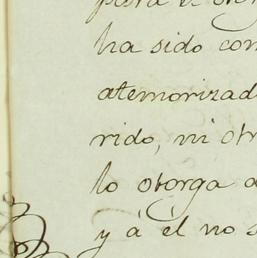 para el otor
ha sido con
atemorizad
rido, ni otr
lo otorga a
y á él no s